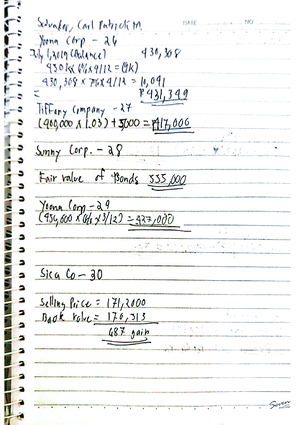 Salvador, Carl Patrick M. DATE NO
Yoona Corp - 26
July 1, 2019 (Balance) 430,308
430,308 x 7% x 4/12 = 10,041
= ₱ 431,349
Tiffany Company - 27
(400,000 x 1.03) + 5,000 = ₱417,000
Sunny Corp. - 28
Fair value of Bonds 555,000
Yoona Corp - 29
= 427,000
Sica Co - 30
Selling Price = 171,2000
Book Value = 170,313
687 gain